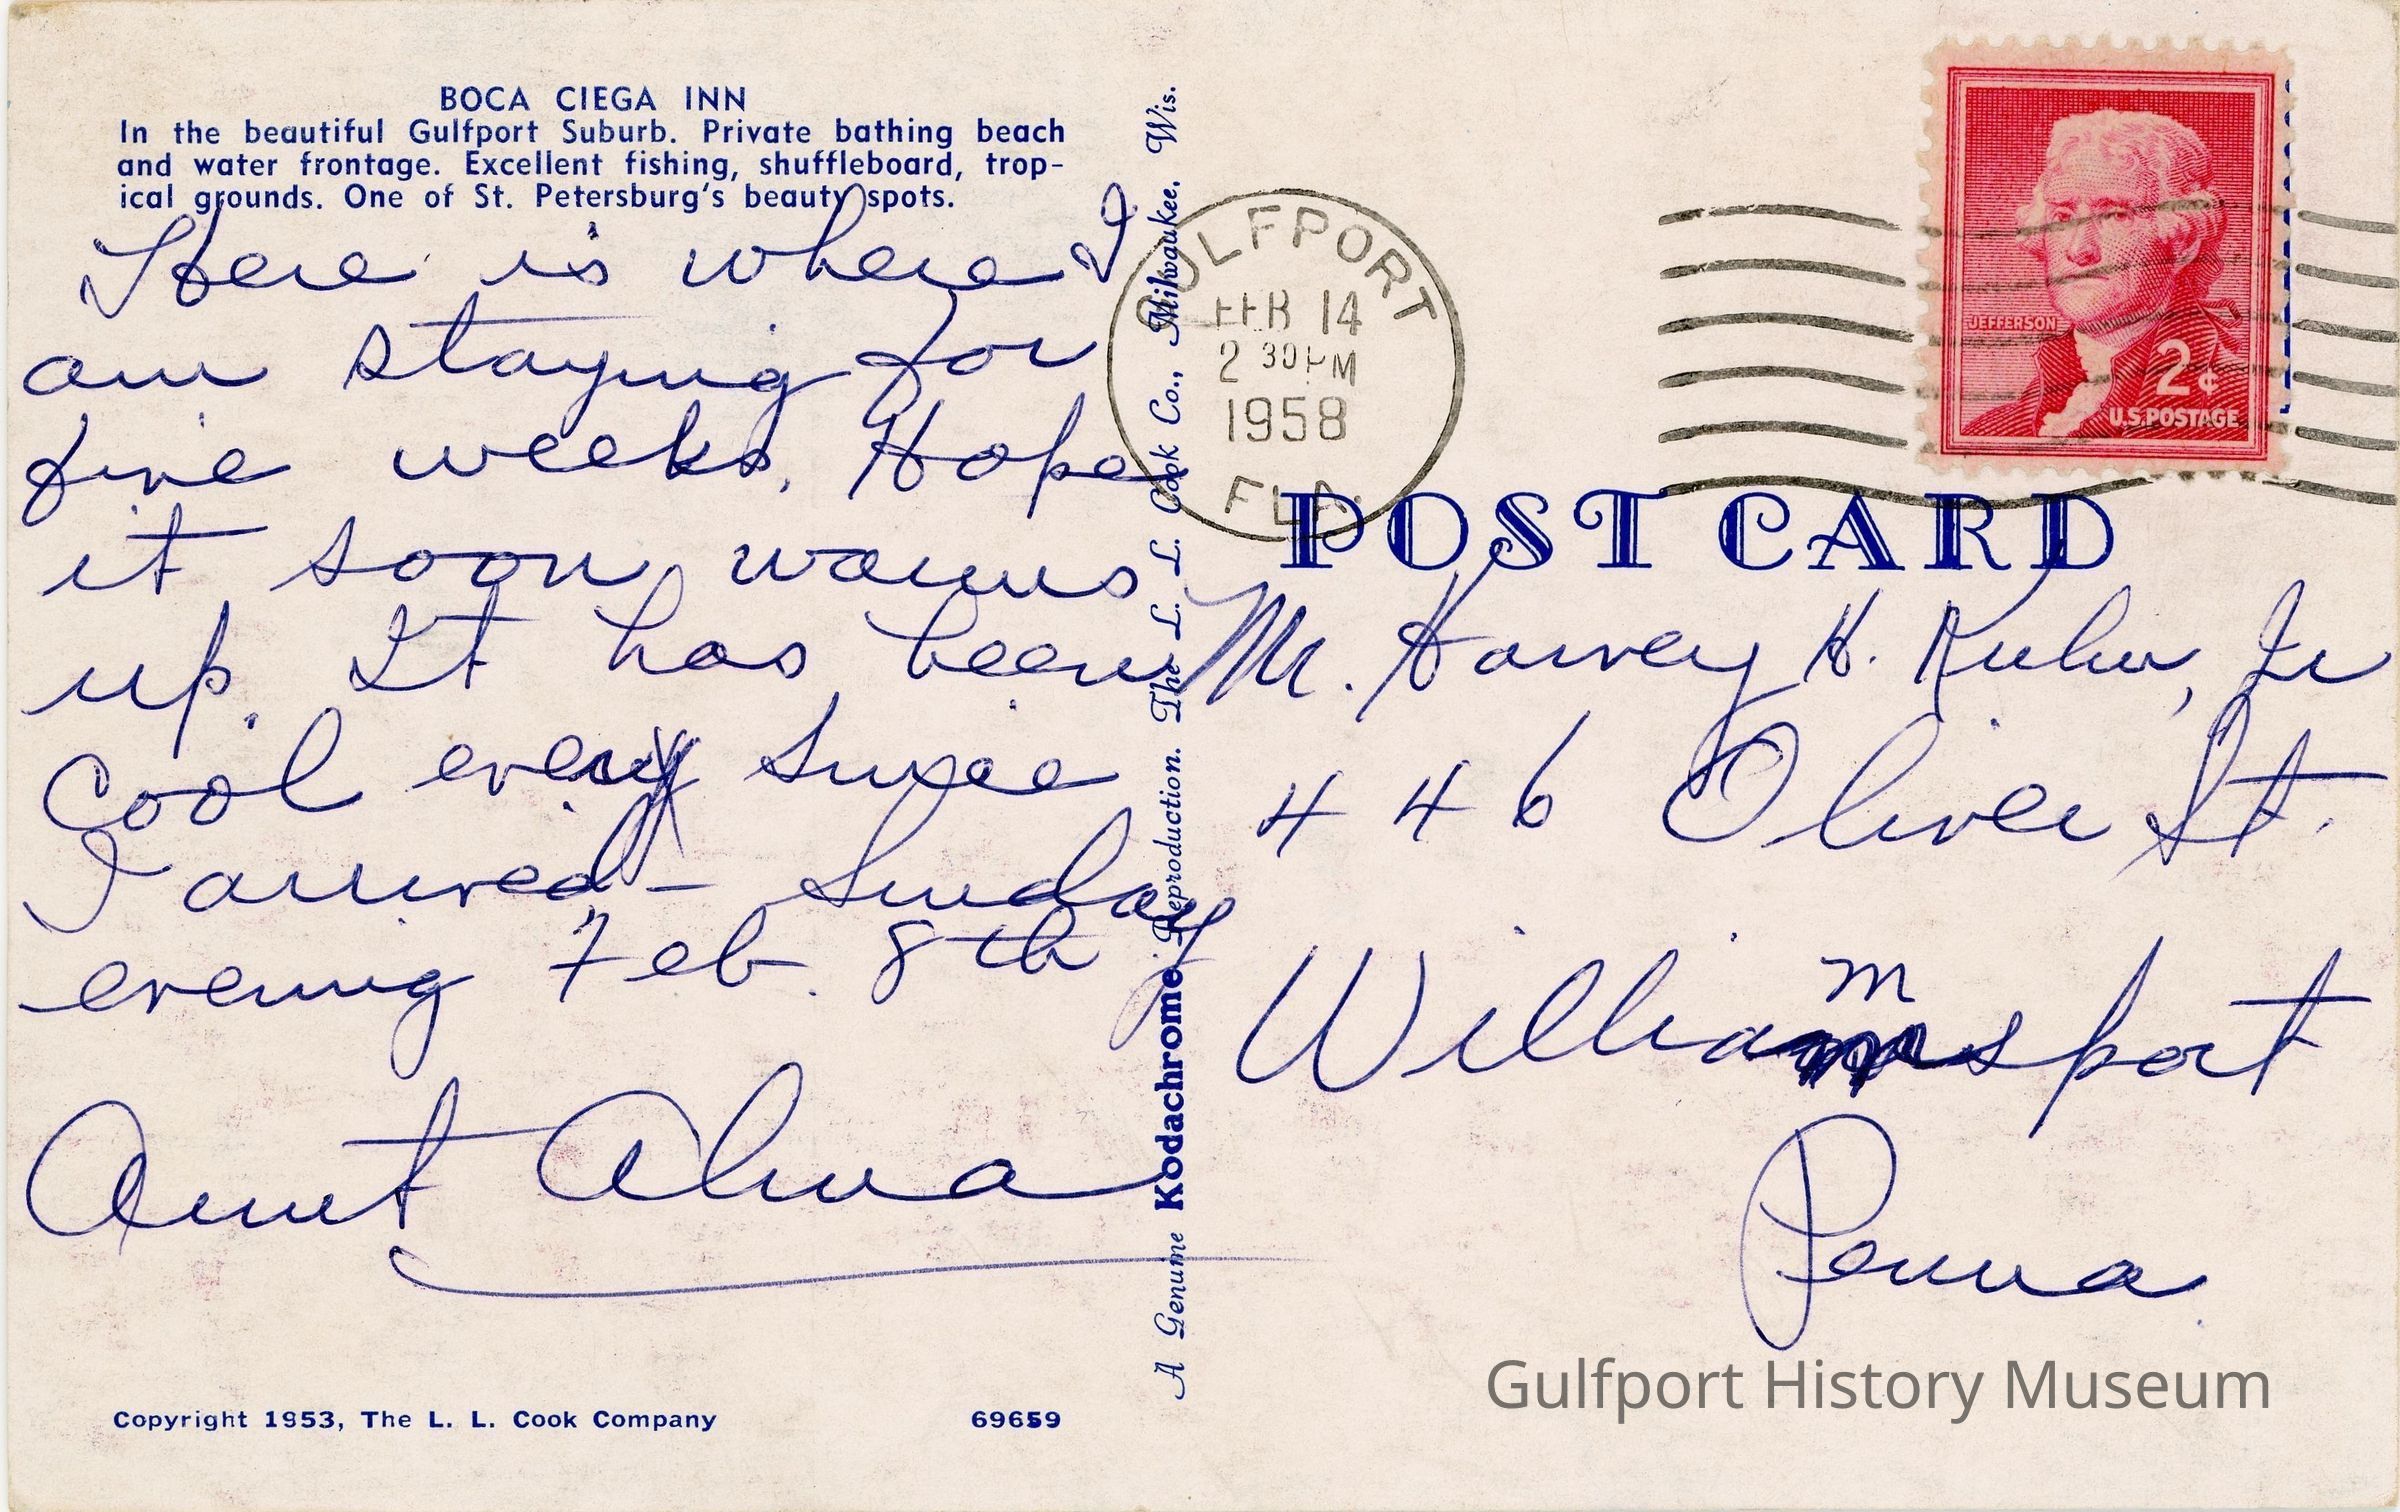 BOCA CIEGA INN
In the beautiful Gulfport Suburb. Private bathing beach
and water frontage. Excellent fishing, shuffleboard, trop-
ical grounds. One of St. Petersburg's beauty spots.
Here is where I
am staying for
five weeks. Hope
it soon warms
up. It has been
cool every since
I arrived - Sunday
evening Feb. 8th
Aunt Alma
Copyright 1953, The L. L. Cook Company
69659
A Genuine Kodachrome Reproduction. The L. L. Cook Co., Milwaukee. Wis.
GULFPORT
FEB 14
2 30 PM
1958
FLA.
JEFFERSON
2¢
U.S. POSTAGE
POST CARD
Mr. Harvey H. Kuhn, Jr
446 Oliver St.
Williamsport
Penna
Gulfport History Museum